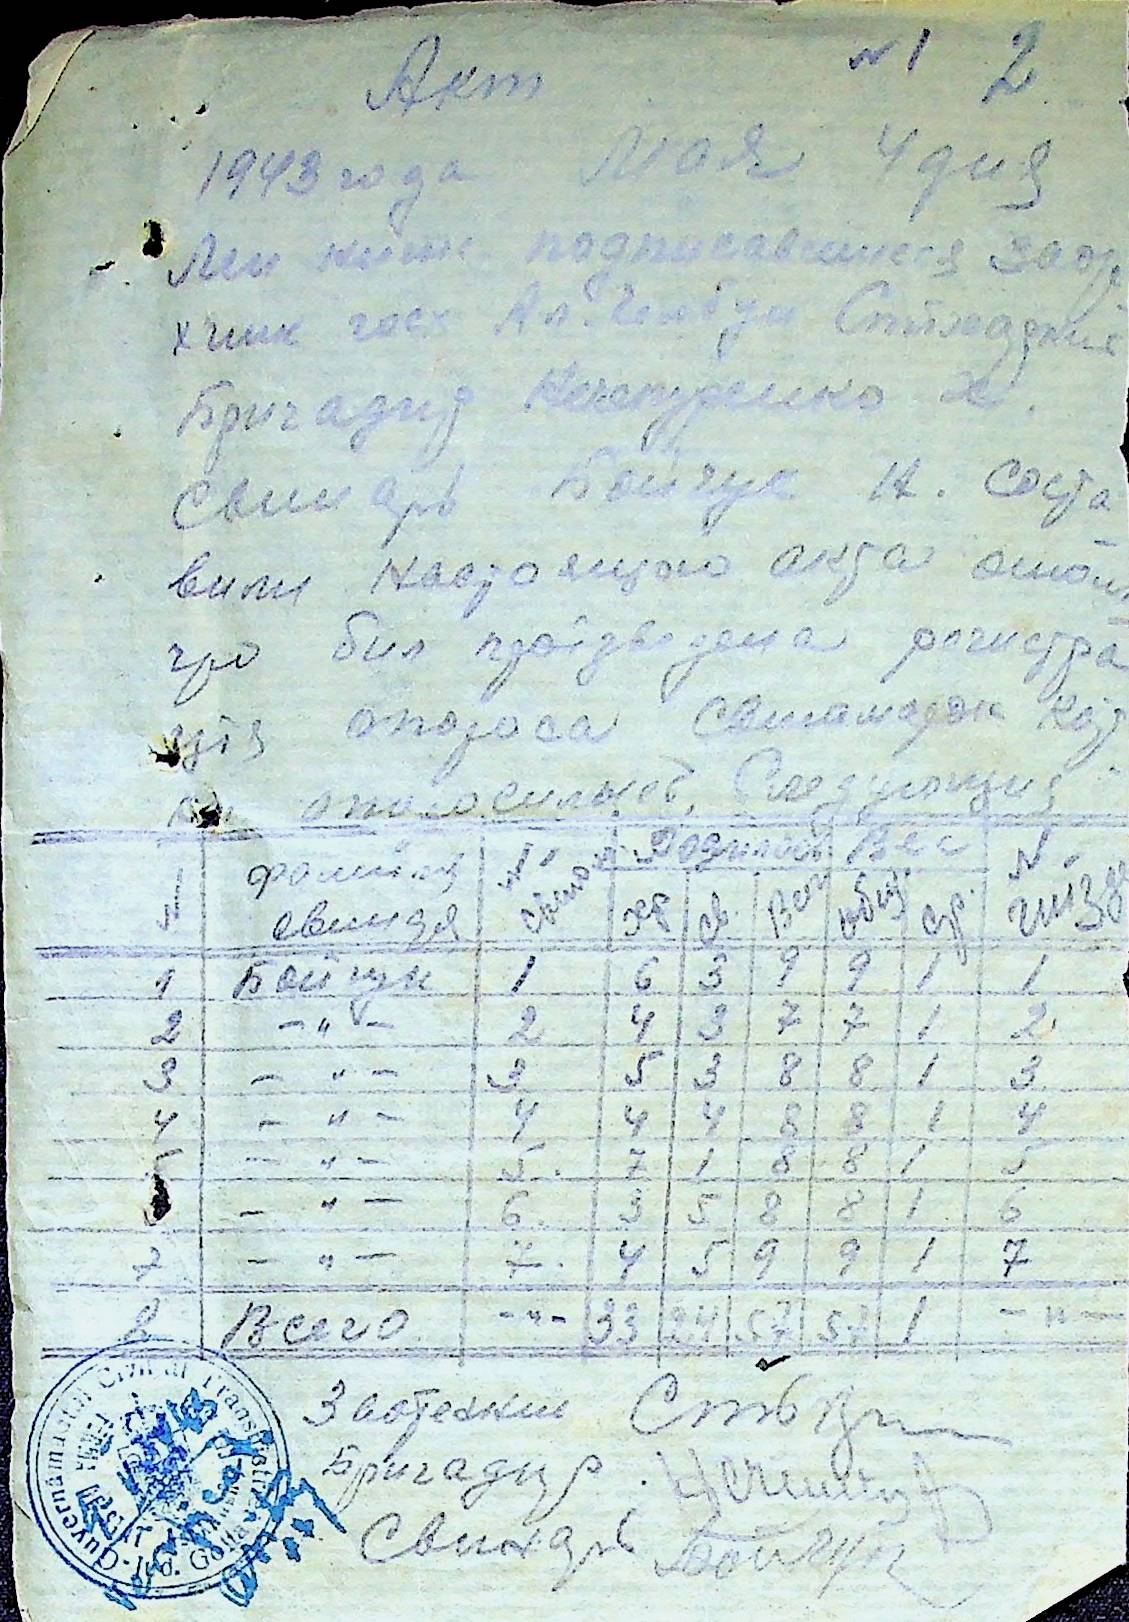 Акт № 1 2
1943 года Мая 4 дня
Мы ниже подписавшиеся Заоте
хник госх
Бригадир Нечипуренко Х.
Свинарь Бойчук Н. Соста
вили Настоящого акта
що был произведена регистра
ция опороса свиноматок
опоросились Следующия
№ фамилия свинаря № свином. Родилось Вес № гнізд
хр св. Всего общ. ср.
1 Бойчук 1 6 3 9 9 1 1
2 -"- 2 4 3 7 7 1 2
3 -"- 3 5 3 8 8 1 3
4 -"- 4 4 4 8 8 1 4
5 -"- 5. 7 1 8 8 1 5
-"- 6. 3 5 8 8 1 6
7 -"- 7. 4 5 9 9 1 7
8 Всего -"- 33 24 57 57 1 -"-
Заотехник
Бригадир
Свинарь Бойчук
Guvernământul Civil al Transnistriei
Jud. Golta